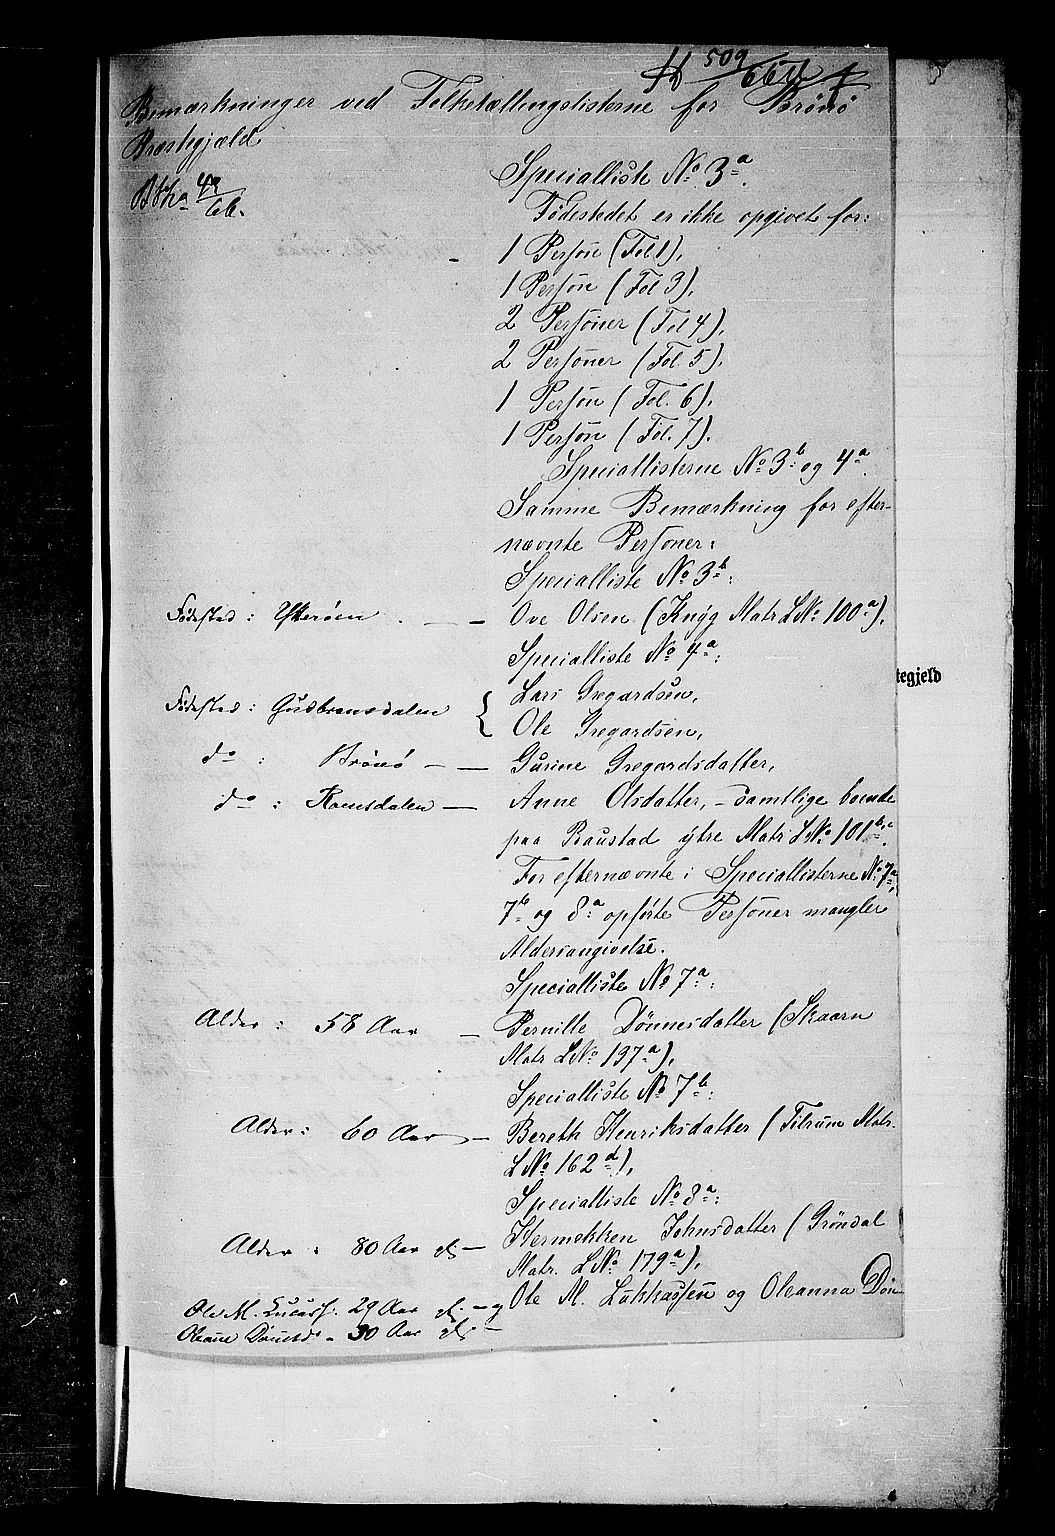 509
Bemærkninger ved Folketællingslisterne for Brönö
Præstegjæld
Specialliste No 3a.
Fødestedet er ikke opgivet for:
1 Person (Fol 1),
1 Person (Fol 3),
2 Personer (Fol 4),
2 Personer (Fol. 5),
1 Person (Fol. 6),
1 Person (Fol. 7).
Speciallisterne No 3b og 4a.
Samme Bemærkning for efter-
nævnte Personer:
Specialliste No 3b:
Fødested: Ytterøen — Ove Olsen (Knÿg Matr LNo 100a),
Specialliste No 4a:
Lars Gregardsen,
Fødested: Gudbransdalen { Ole Gregardsen,
do : Brönö — Gurine Gregardsdatter,
do : Romsdalen — Anne Olsdatter, – samtlige boende
paa Raustad ÿtre Matr LNo 101b,c.
For efternævnte i Speciallisterne No 7a,
7b og 8a opförte Personer mangler
Aldersangivelse.
Specialliste No 7a:
Alder: 58 Aar — Pernille Dönnesdatter (Skaarn
Matr LNo 197a),
Specialliste No 7b:
Alder: 60 Aar — Bereth Henriksdatter (Tilrum Matr.
LNo 162d),
Specialliste No 8a:
Alder: 80 Aar — Hermekken Johnsdatter (Gröndal
Matr. LNo 179a),
Ole M. Lucass. 29 Aar — Ole M. Lukkassen og Oleanna Dön
30 Aar —
tegjeld